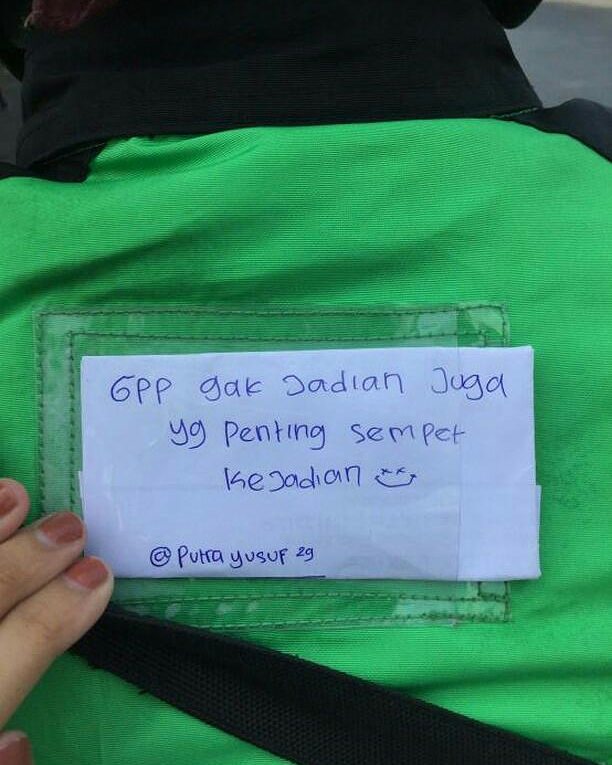 GPP gak Jadian Juga
yg Penting sempet
KeJadian
@Putra yusuf 29